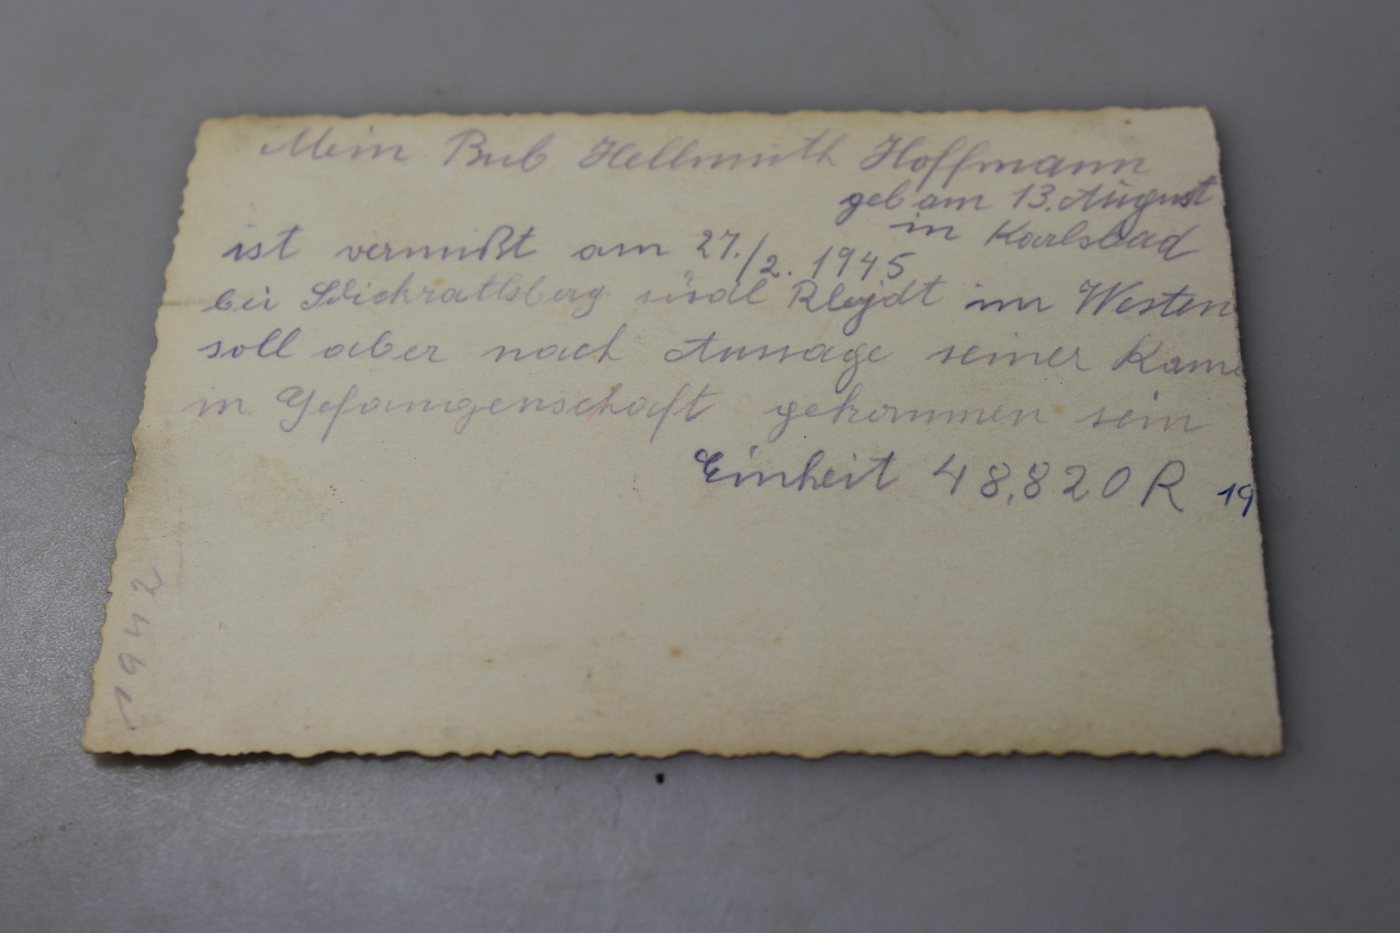 Mein Bub Hellmuth Hoffmann
geb am 13. August
in Karlsbad
ist vermißt am 27./2. 1945
bei Wickrathsberg südl Rheydt im Westen
soll aber nach Aussage seiner Kame
in Gefangenschaft gekommen sein
Einheit 48,820 R
19
1942